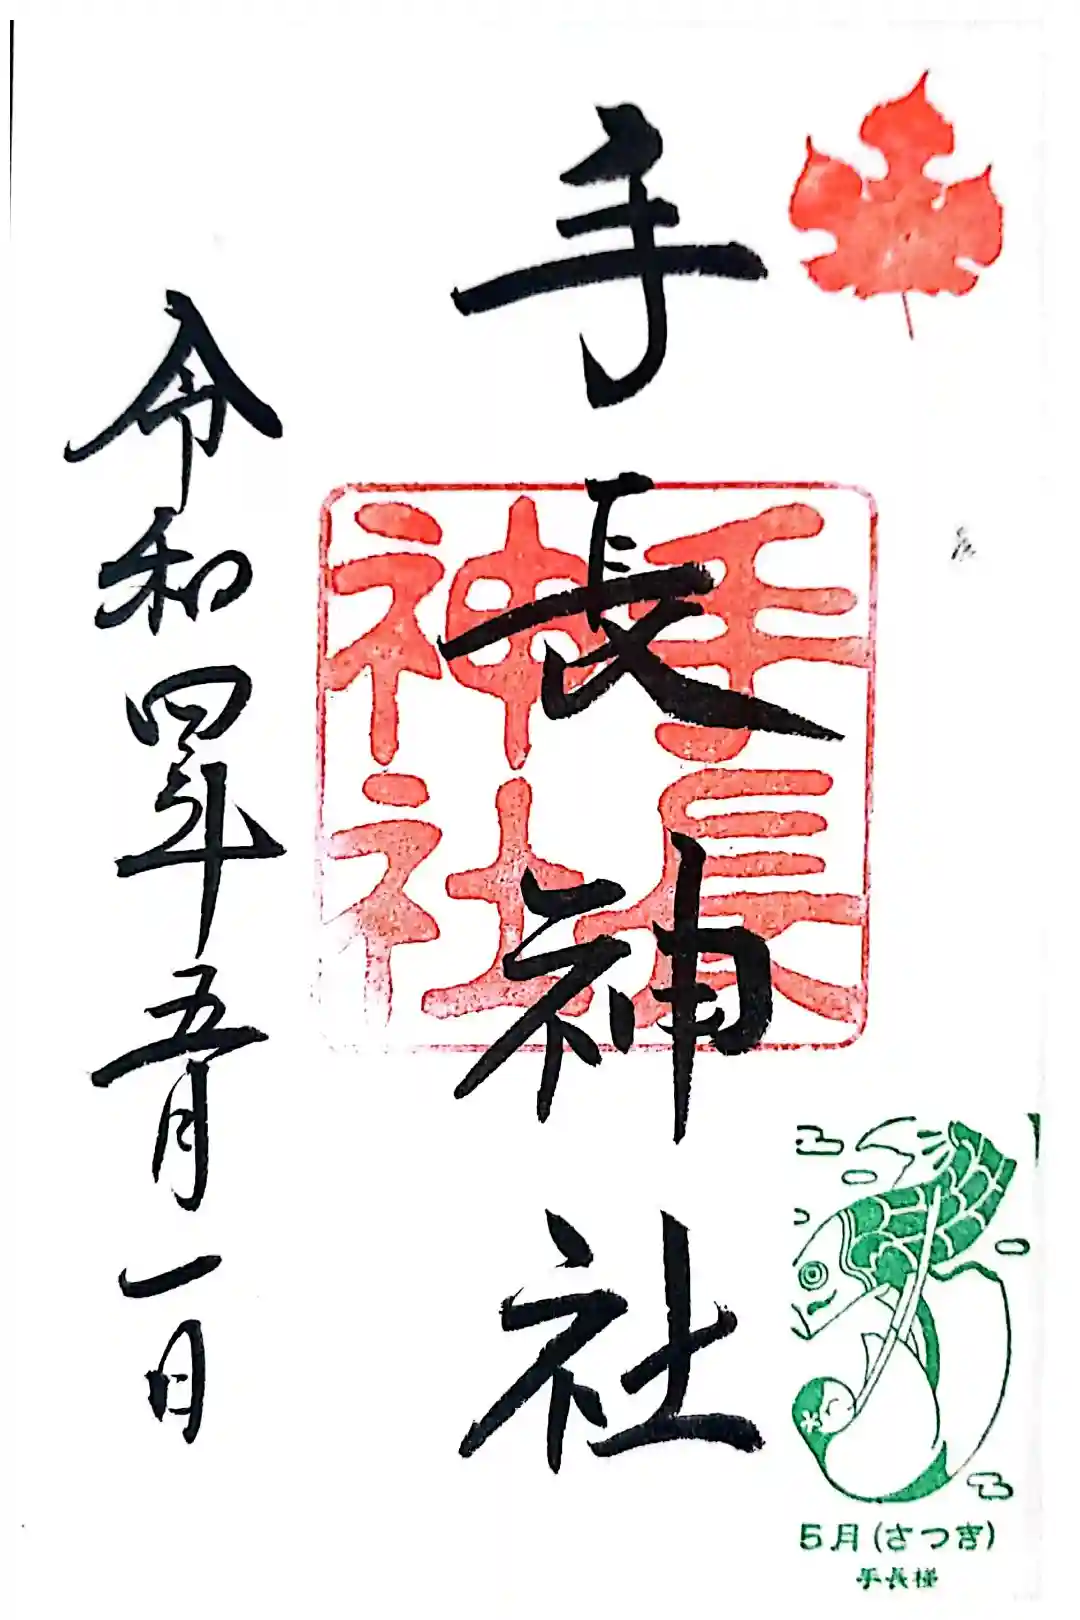 手長神社
手長
神社
令和四年五月一日
5月(さつき)
手長様